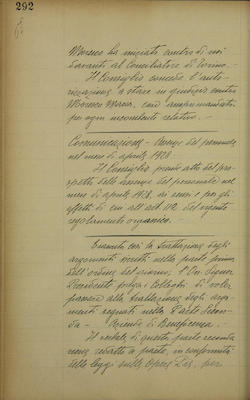 292
Moreno ha iniziati contro di noi
davanti al Conciliatore di Torino.
Il Consiglio concede l'auto-
rizzazione a stare in giudizio contro
Moreno Maria, così
per ogni incombente relativo.
Comunicazione - Assenze del personale
nel mese di aprile 1928.
Il Consiglio prende atto del pro-
spetto delle assenze del personale nel
mese di aprile 1928, ai sensi e per gli
effetti di cui all'art. 112 del vigente
regolamento organico.
Esaurita così la trattazione degli
argomenti iscritti nella parte prima
dell'ordine del giorno, l'On. Signor
Presidente prega i Colleghi di voler
passare alla trattazione degli argo-
menti segnati nella Parte Secon-
da - Aziende di Beneficenza.
Il verbale di questa parte seconda
viene redatto a parte, in conformità
delle leggi sulle Opere Pie, per